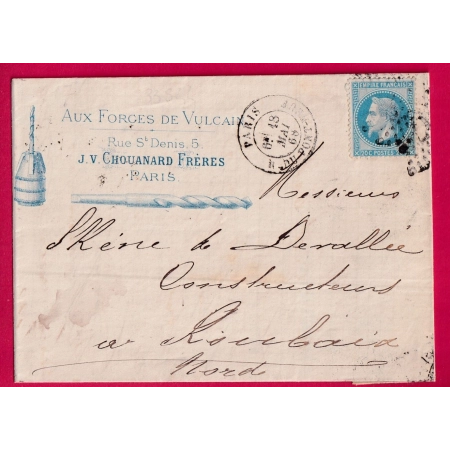 AUX FORGES DE VULCAIN
Rue St Denis, 5
J.V. CHOUANARD FRÈRES
PARIS
PARIS
MAI
EMPIRE FRANÇAIS
20 C POSTES 20 C
Messieurs
Skéne & Devallée
Constructeurs
à Roubaix
Nord